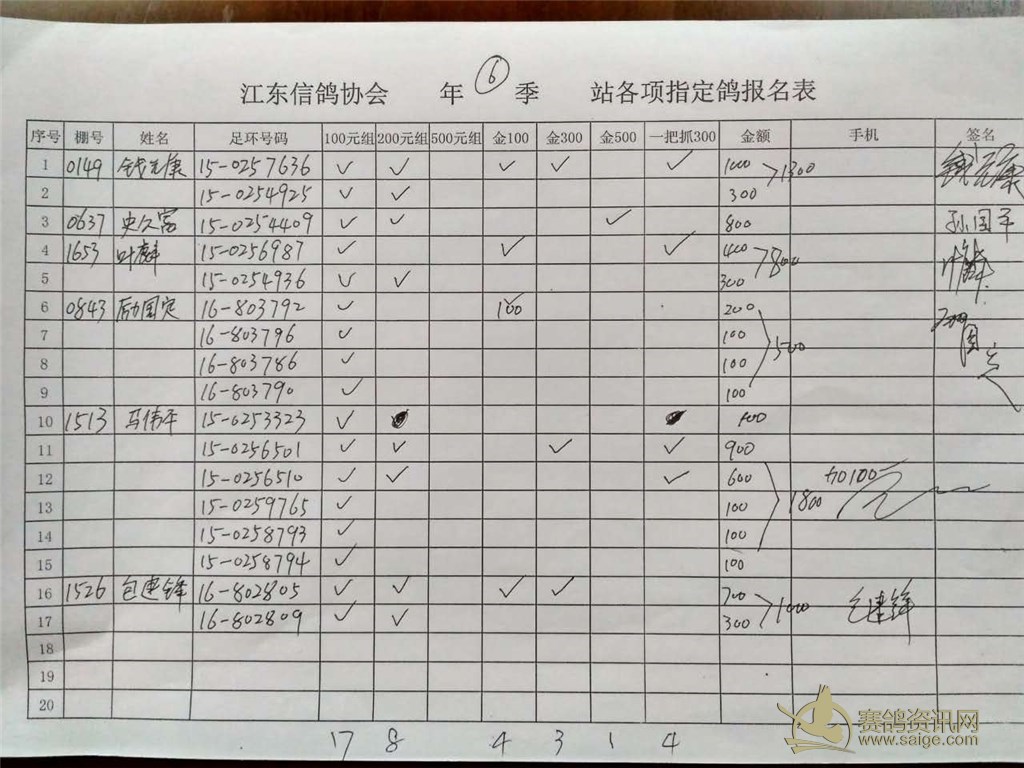 江东信鸽协会 年 ⑥ 季 站各项指定鸽报名表
序号 棚号 姓名 足环号码 100元组 200元组 500元组 金100 金300 金500 一把抓300 金额 手机 签名
1 0149 钱元康 15-0257636 ✓ ✓ ✓ ✓ ✓ 1000 >1300 钱元康
2 15-0254925 ✓ ✓ 300
3 0637 史久富 15-0254409 ✓ ✓ ✓ 800 孙国平
4 1653 叶麟 15-0256987 ✓ ✓ ✓ 400 >800 叶麟
5 15-0254936 ✓ ✓ 300
6 0843 励国定 16-803792 ✓ 100 200
7 16-803796 ✓ 100 500
8 16-803786 ✓ 100
9 16-803790 ✓ 100
10 1513 马伟平 15-0253323 ✓ 100
11 15-0256501 ✓ ✓ ✓ ✓ 900
12 15-0256510 ✓ ✓ ✓ 600 加100元
13 15-0259765 ✓ 100 1800
14 15-0258793 ✓ 100
15 15-0258794 ✓ 100
16 1526 包建锋 16-802805 ✓ ✓ ✓ ✓ 700 >1000 包建锋
17 16-802809 ✓ ✓ 300
18
19
20
17 8 4 3 1 4
赛鸽资讯网
www.saige.com